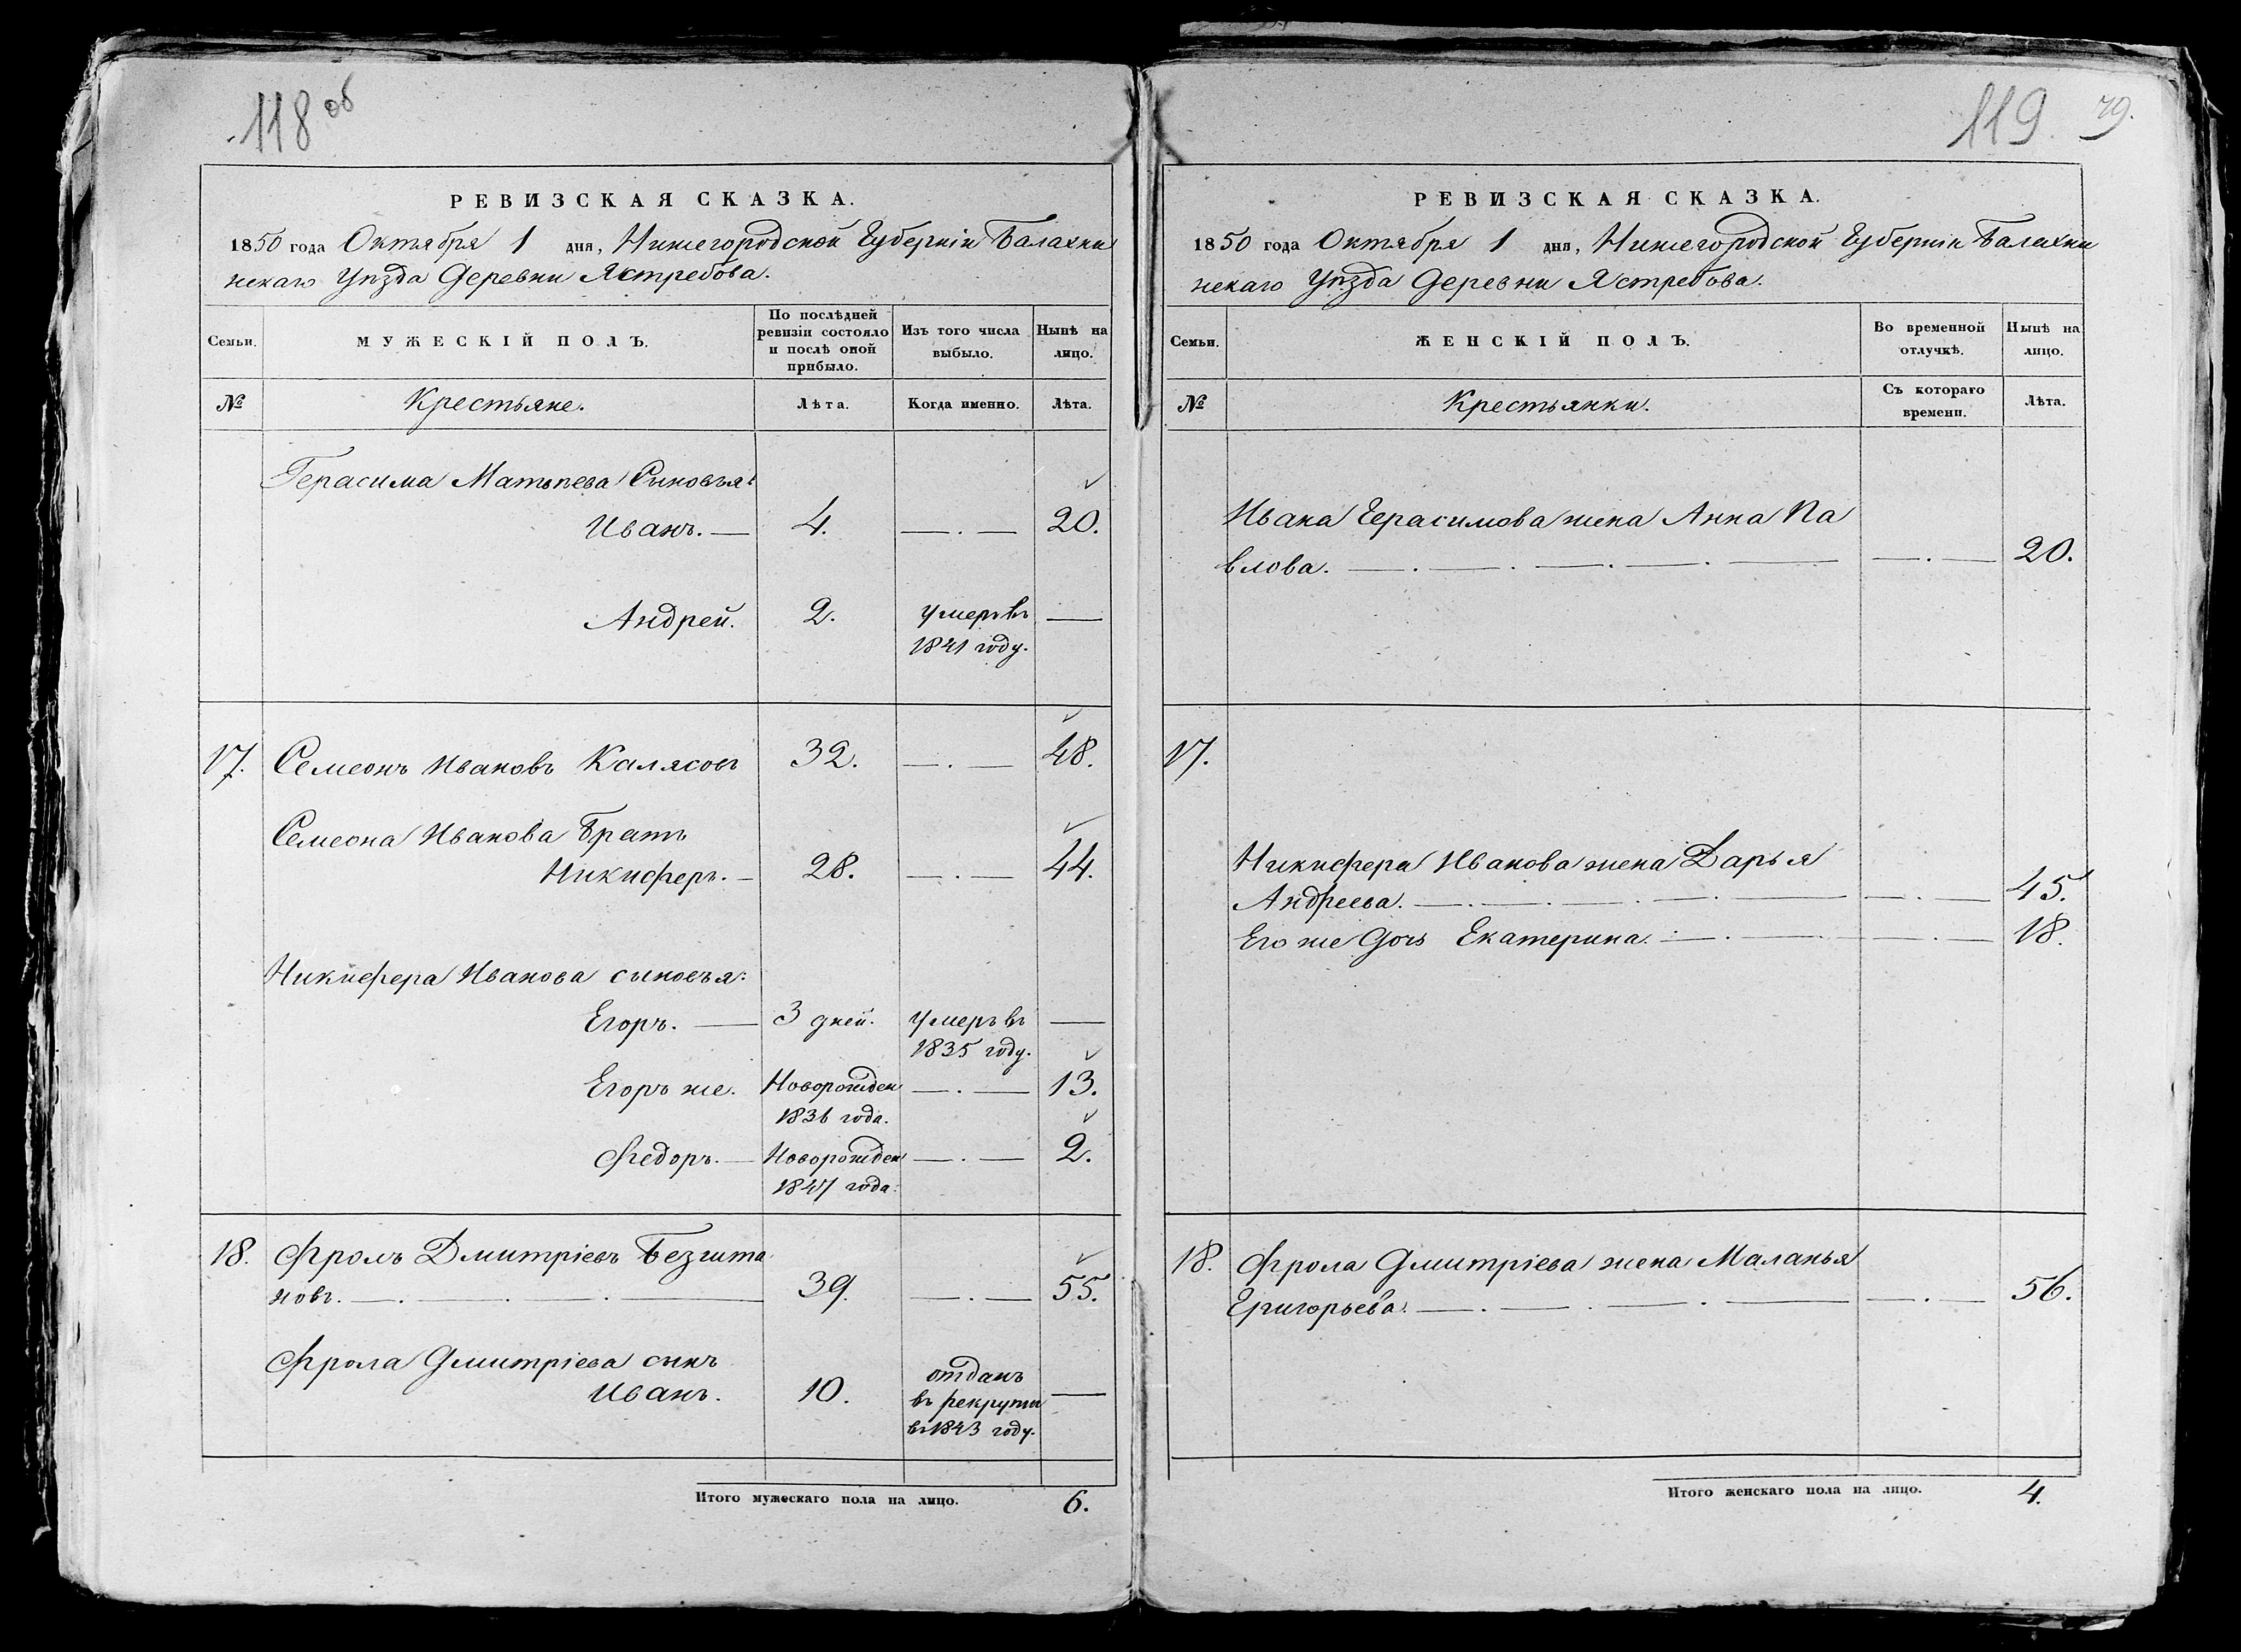 118 об
РЕВИЗСКАЯ СКАЗКА.
1850 года Октября 1 дня, Нижегородской Губерніи Балахни
нскаго Уѣзда Деревни Ястребова.
Семьи.
МУЖЕСКІЙ ПОЛЪ.
По послѣдней
ревизіи состояло
и послѣ оной
прибыло.
Изъ того числа
выбыло.
Нынѣ на
лицо.
№
Крестьяне.
Лѣта.
Когда именно.
Лѣта.
Герасима Матвѣева Сыновья:
Иванъ. — 4. —.— 20.
Андрей. 2. умеръ въ —
1841 году.
17. Семеонъ Ивановъ Калясовъ 32. —.— 48.
Семеона Иванова Братъ
Никиферъ. — 28. —.— 44.
Никифера Иванова сыновья:
Егоръ. — 3 дней. умеръ въ —
1835 году.
Егоръ же. Новорожден —.— 13.
1836 года.
Федоръ. — Новорожден —.— 2.
1847 года.
18. Фролъ Дмитріевъ Безгита
новъ. —.—.—.— 39. —.— 55.
Фрола Дмитріева сынъ
Иванъ. 10. отданъ —
въ рекруты
въ 1843 году.
Итого мужескаго пола на лицо. 6.
119. 79.
РЕВИЗСКАЯ СКАЗКА.
1850 года Октября 1 дня, Нижегородской Губерніи Балахни
нскаго Уѣзда Деревни Ястребова.
Семьи.
ЖЕНСКІЙ ПОЛЪ.
Во временной
отлучкѣ.
Нынѣ на
лицо.
№
Крестьянки.
Съ котораго
времени.
Лѣта.
Ивана Герасимова жена Анна Па
влова. —.—.—.—.— —.— 20.
17.
Никифера Иванова жена Дарья
Андреева. —.—.—.—.— —.— 45.
Его же Дочь Екатерина. —.— —.— 18.
18. Фрола Дмитріева жена Маланья
Григорьева. —.—.—.— —.— 56.
Итого женскаго пола на лицо. 4.